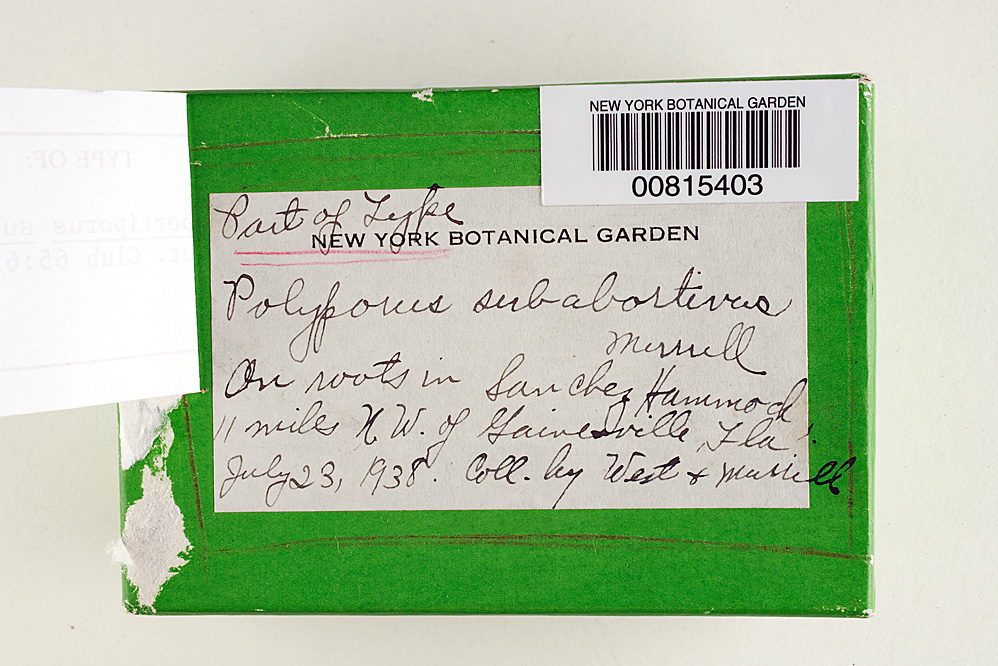 NEW YORK BOTANICAL GARDEN
00815403
TYPE OF:
Part of Type
NEW YORK BOTANICAL GARDEN
Polyporus subabortivus
Murrill
On roots in Sanchez Hammock
11 miles N.W. of Gainesville, Fla.
July 23, 1938. Coll. by West & Murrill